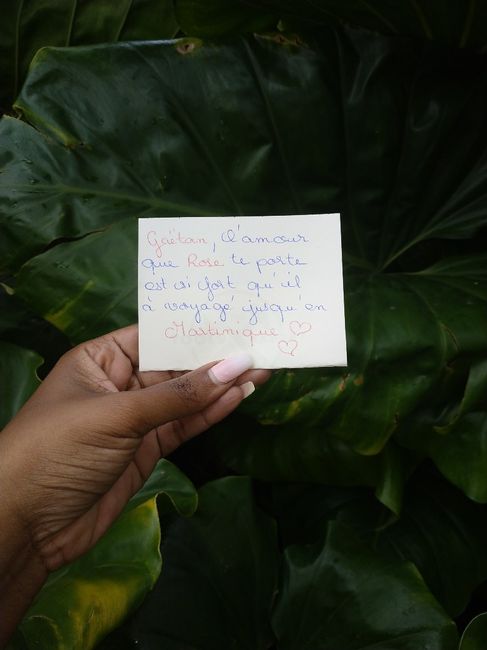 Gaëtan, l'amour
que Rose te porte
est si fort qu'il
à voyagé jusqu'en
Martinique